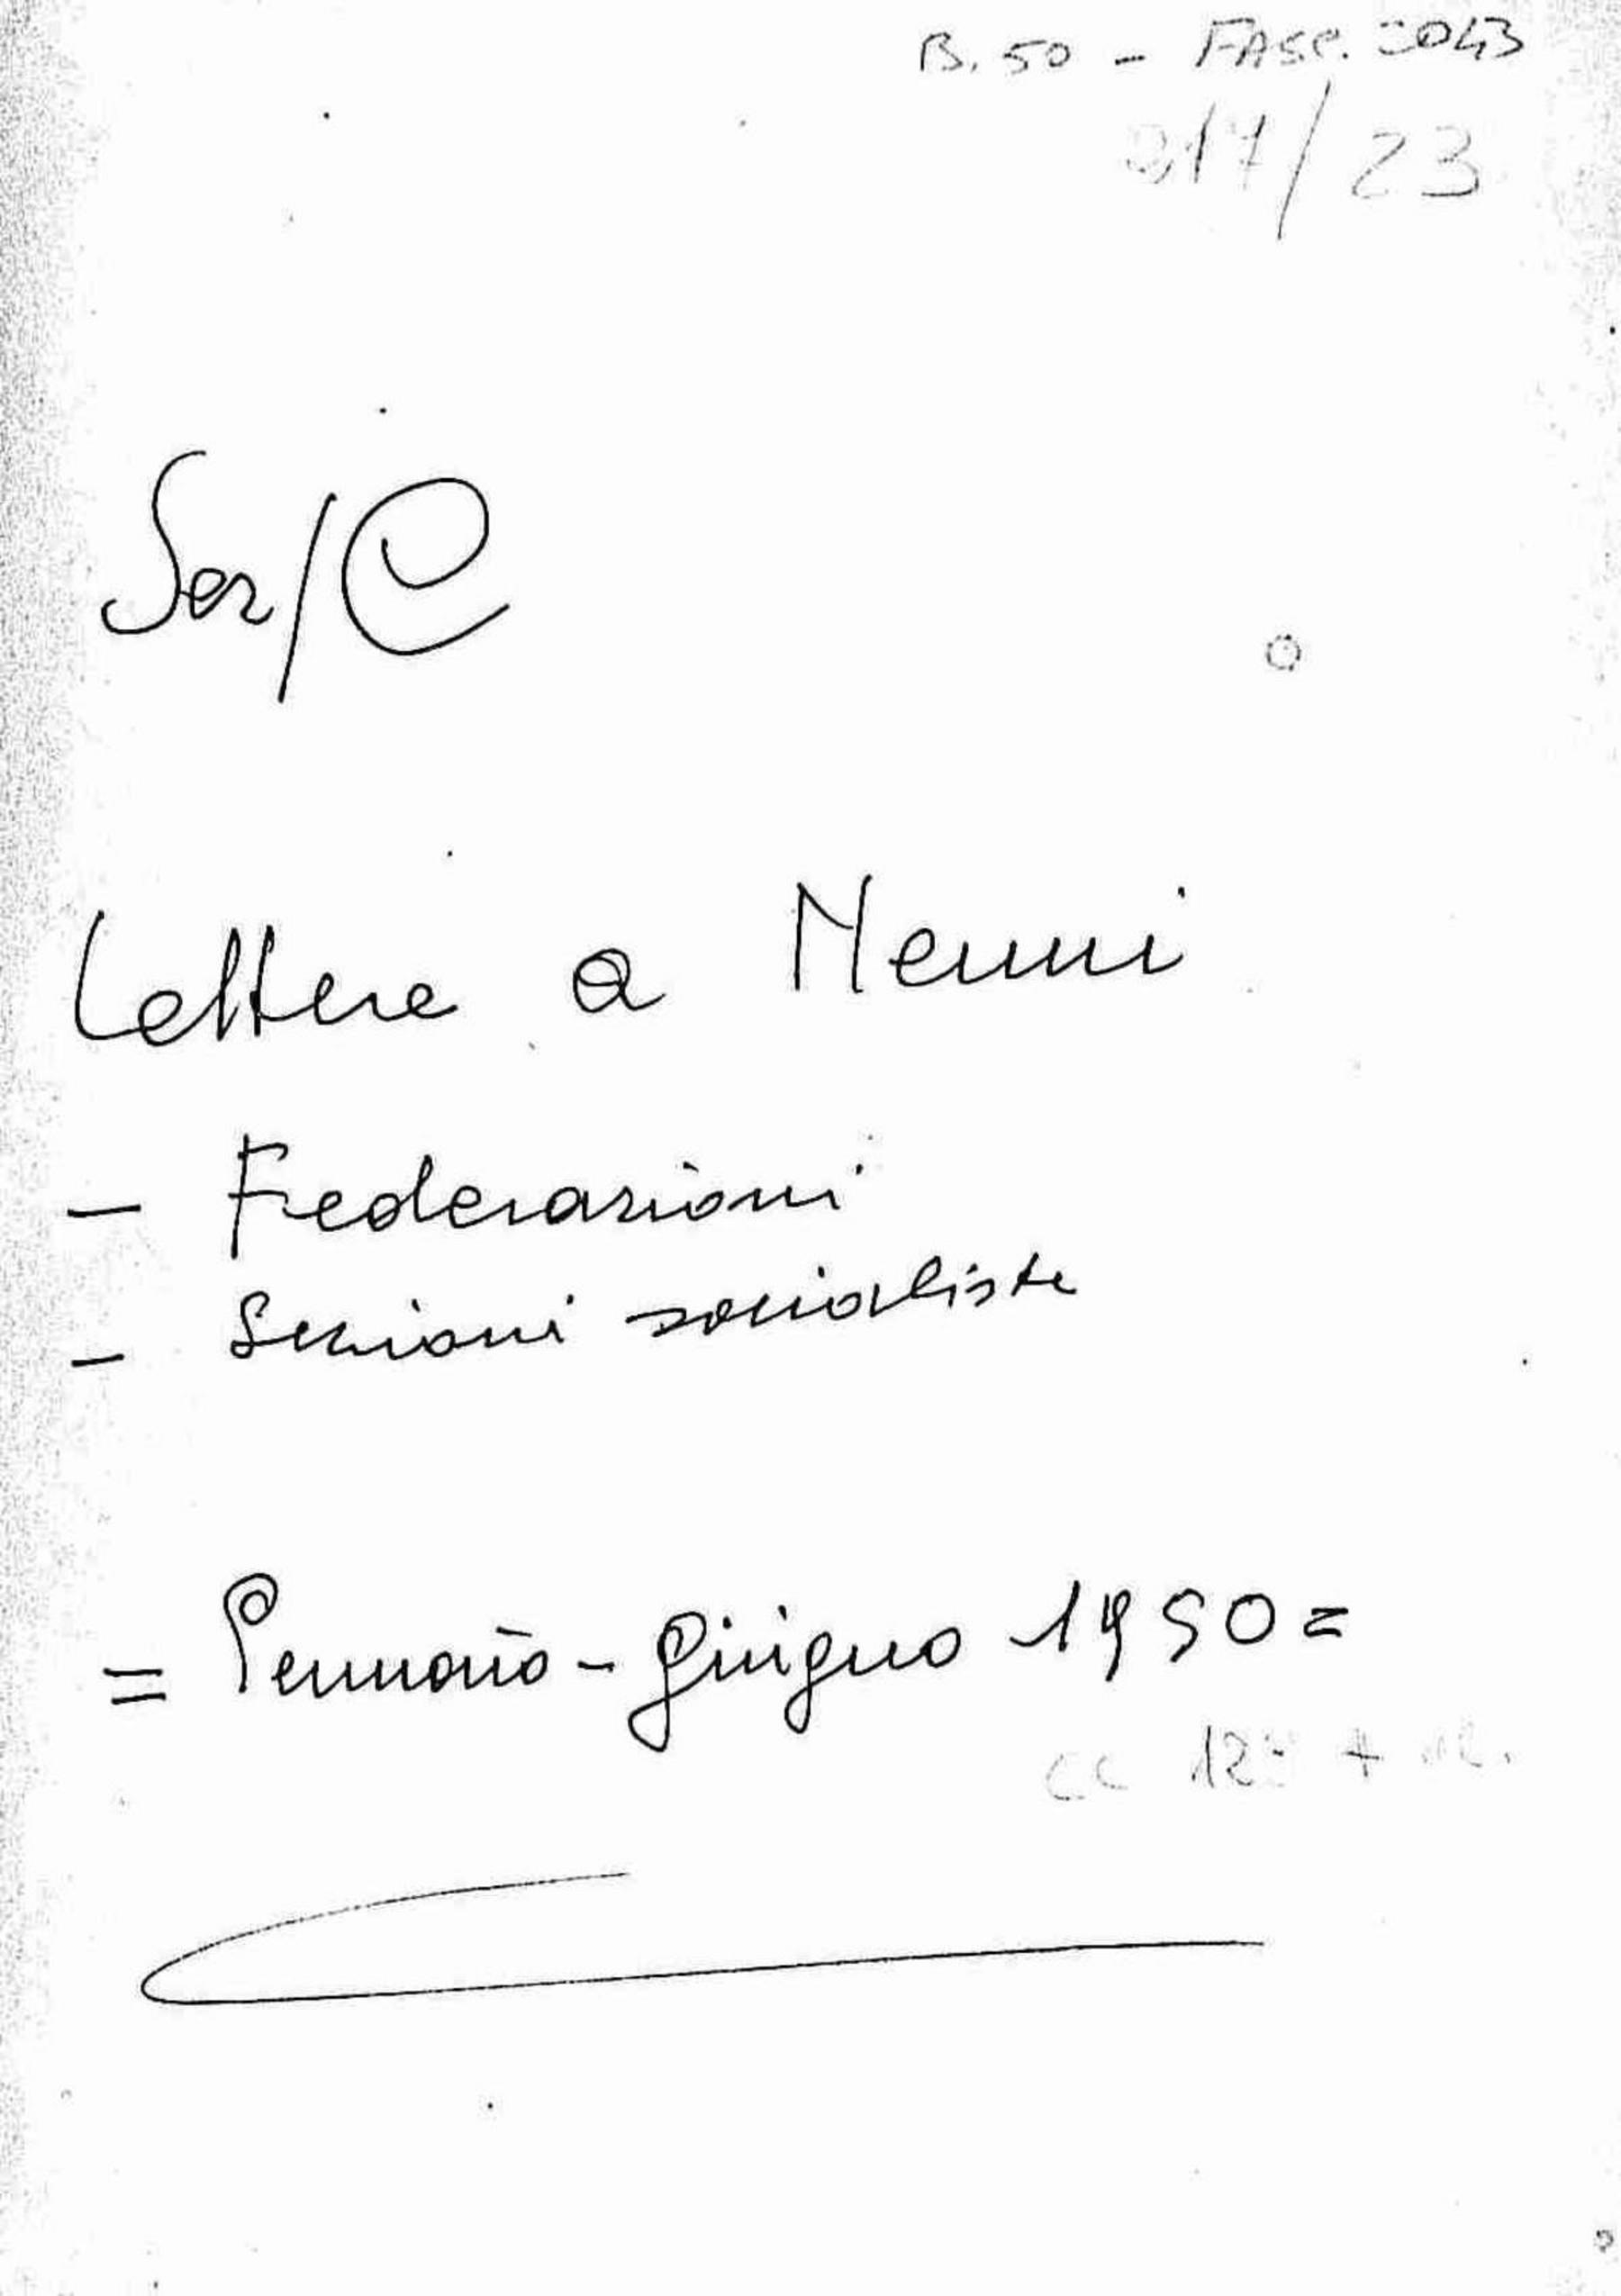 B. 50 - FASC. 2043
217/23
Ser/C
Lettere a Nenni
- Federazioni
- Sezioni socialiste
= Gennaio - giugno 1950 =
cc